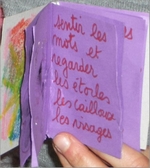 sentir les
mots et
regarder
les étoiles
les cailloux
les visages